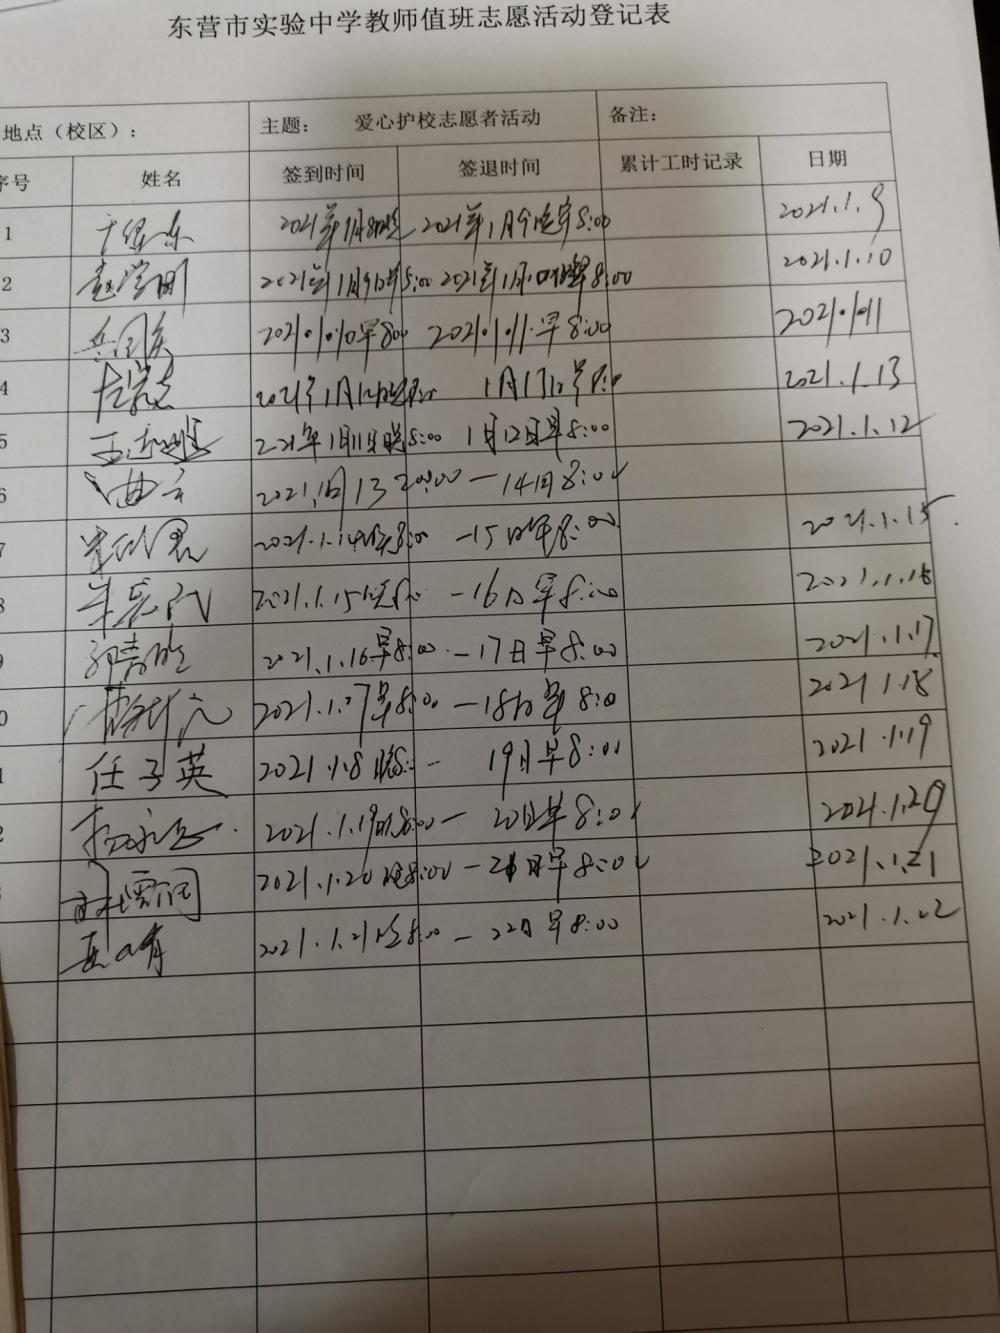 东营市实验中学教师值班志愿活动登记表
地点（校区）： 主题： 爱心护校志愿者活动 备注：
序号 姓名 签到时间 签退时间 累计工时记录 日期
1 2021年1月8日晚 2021年1月9日 8:00 2021.1.9
2 赵学明 2021年1月9日早8:00 2021年1月10日早8:00 2021.1.10
3 2021.1.10早8:00 2021.1.11.早8:00 2021.1.11
4 2021年1月12日晚 1月13日早8:00 2021.1.13
5 2021年1月11日晚8:00 1月12日早8:00 2021.1.12
6 曲 2021.1月13 20:00 — 14日8:00
7 2021.1.14晚8:00 —15日早8:00 2021.1.15.
8 2021.1.15晚8:00 —16日早8:00 2021.1.16
9 2021.1.16早8:00 —17日早8:00 2021.1.17.
0 2021.1.17早8:00 —18日早8:00 2021.1.18
1 任子英 2021.1.18晚8: — 19日早8:00 2021.1.19
2 2021.1.19晚8:00 — 20日早8:00 2021.1.20
2021.1.20晚8:00 —21日早8:00 2021.1.21
2021.1.21晚8:00 — 22日早8:00 2021.1.22